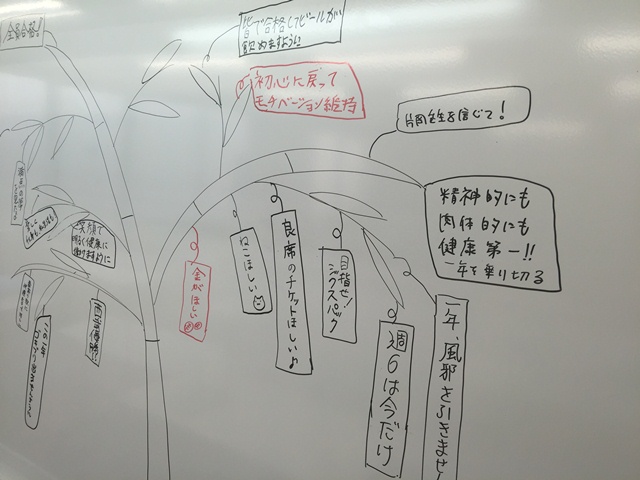 全員合格!
皆で合格してビールが
飲めますように
初心に戻って
モチベーション維持
片岡先生を信じて!
精神的にも
肉体的にも
健康第一!!
一年を乗り切る
笑顔で
明るく健康に
働けますように
金がほしい
ねこほしい
良席のチケットほしいよ
目指せ!
シックスパック
週6は今だけ
一年、風邪を引きません